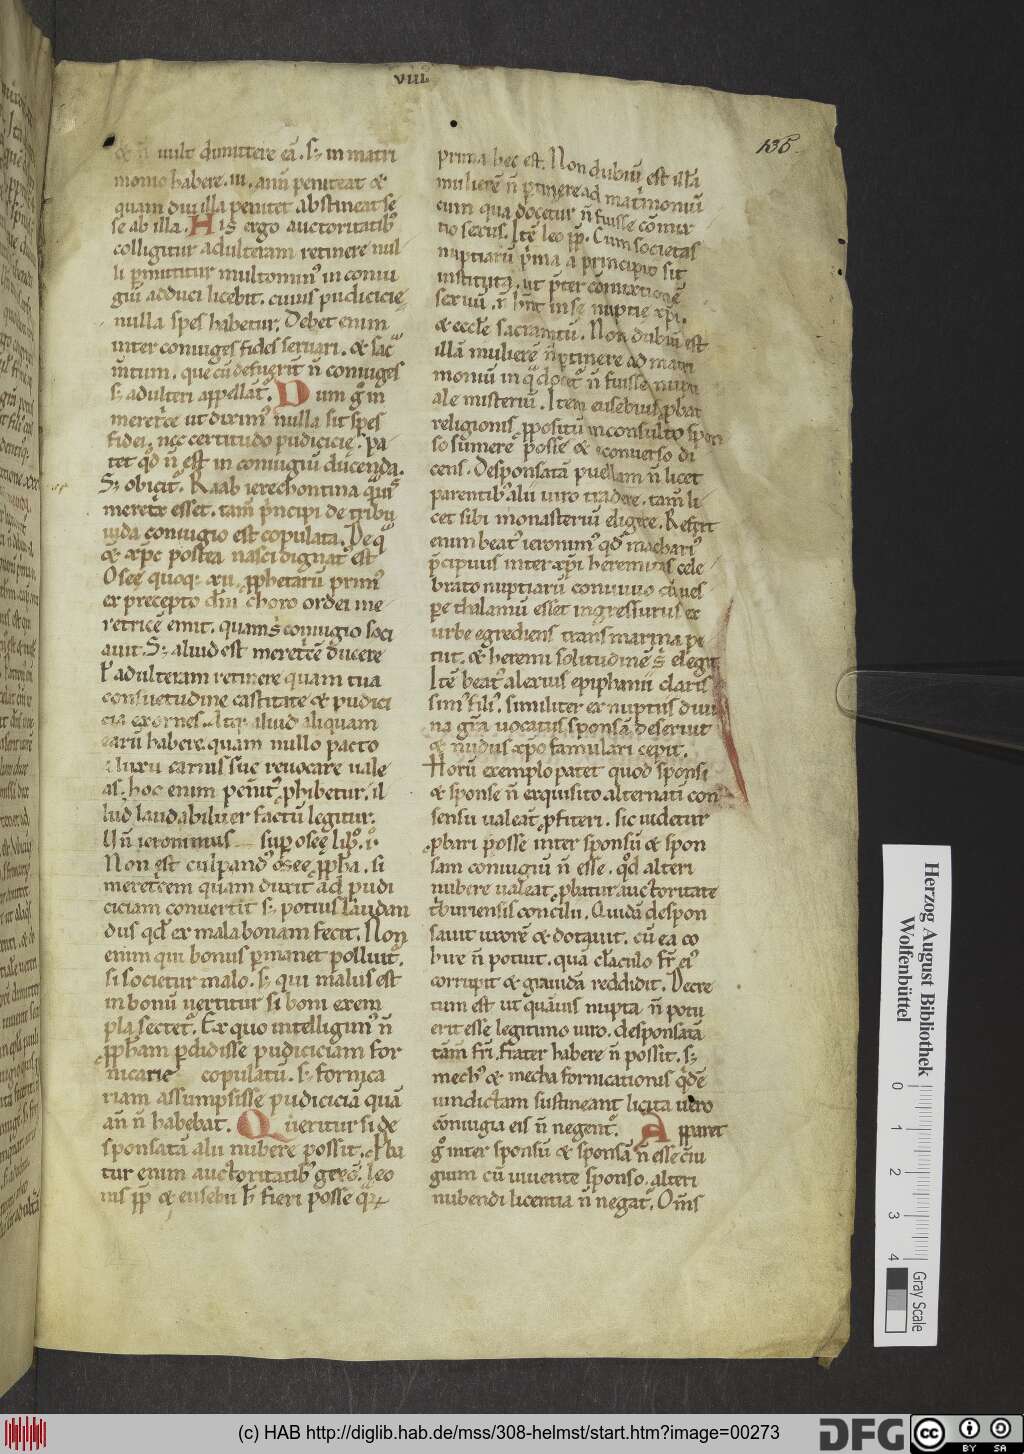 viii
135
& n̄ uult dimittere eā. s; in matri
monio habere. iii. anñ peniteat &
quam diu illa penitet abstineat se
se ab illa. His ergo auctoritatib;
colligitur adulteram retinere nul
li ꝑmittitur multominꝰ in coniu
giū adduci licebit. cuius pudicicię
nulla spes habetur. Debet enim
inter coniuges fides seruari. & sac
m̄tum. que cū defuerit n̄ coniuges
s; adulteri appellāt̄. Dum g̊ in
meretrice ut diximꝰ nulla sit spes
fidei. nec certitudo pudicicię. pa
tet qd̄ n̄ est in coniugiū ducenda.
S; obicit̄. Raab ierechontina quāuis
meretrix esset. tam̄ p̄ncipi de tribu
iuda coniugio est copulata. De q
& xp̄c postea nasci dignatꝰ est
Osee quoq; xii ꝓphetarū primꝰ
ex precepto dn̄i choro ordei me
retricē emit. quam s̄ coniugio soci
auit. S; aliud est meretricē ducere
ł adulteram retinere quam tua
consuetudine castitate & pudici
cia exornes. Alt̄ aliud aliquam
earū habere. quam nullo pacto
a luxu carnis suę reuocare uale
as. hoc enim penit̄ ꝓhibetur. il
lud laudabilit̄ er factū legitur.
Un̄ ieronimus sup oseę lib. i.
Non est culpandꝰ oseę ꝓph̄a. si
meretricem quam duxit ad pudi
ciciam conuertit s; potius laudan
dus qd̄ ex mala bonam fecit. Non
enim qui bonus ꝑmanet polluit̄.
si societur malo. s; qui malus est
in bonū uertitur si boni exem
pla sectet̄. Ex quo intelligimꝰ n̄
ꝓph̄am ꝑdidisse pudiciciam for
nicarie copulatū. s; fornica
riam assumpsisse pudiciciā quā
an̄ n̄ habebat. Queritur si de
sponsata alii nubere possit. Pba
tur enim auctoritatib; greg̃. leo
nis p̄p̄ & eusebii h̄ fieri posse qꝝ
prima hec est. Non dubiū est illā
mulierē n̄ ꝑtinere ad matrimoniū
cum qua docetur n̄ fuisse cōmix
tio sexus. Itē leo p̄p̄. Cum societas
nuptiarū p̄ma a principio sit
instituta. ut p̄ter coniunctionē
sexuū. n̄ hn̄t in se nuptie xp̄i.
& eccl̄e sacramtū. Non dubiū est
illā mulierē n̄ ꝑtinere ad matri
moniū in q̄ docet̄ n̄ fuisse nupti
ale misteriū. Item eusebius. ꝓbat
religionis ꝓpositū inconsulto spon
so sumere posse & conuerso di
cens. Desponsatā puellam n̄ licet
parentib; alii uiro tradere. tam̄ li
cet sibi monasteriū eligere. Refert
enim beatꝰ ieronimꝰ qd̄ machariꝰ
p̄cipuus inter xp̄i heremitas cele
brato nuptiarū conuiuio cū ues
ꝑe thalamū esset ingressurus ex
urbe egrediens transmarina pe
tiit. & heremi solitudinē s̄ elegit.
Itē beatꝰ alexius epiphanii claris
simꝰ filiꝰ. similiter ex nuptiis diui
na gr̄a uocatus sponsā deseruit
& nudus xp̄o famulari cepit.
Horū exemplo patet quod sponsi
& sponse n̄ exquisito alternatī con
sensu ualeāt ꝓfiteri. sic uidetur
ꝓbari posse inter sponsū & spon
sam coniugiū n̄ esse. qd̄ alteri
nubere ualeat. ꝓbatur auctoritate
tburiensis concilii. Quidā despon
sauit uxorē & dotauit. cū ea co
hire n̄ potuit. quā clāculo fr̄ eiꝰ
corrupit & grauidā reddidit. Decre
tum est ut quāuis nupta n̄ potu
erit esse legitimo uiro. desponsatā
tām fr̄i frater habere n̄ possit. s;
mechꝰ & mecha fornicationis qdē
uindictam sustineant licita uero
cōniugia eis n̄ negent̄. Apparet
g̊ inter sponsū & sponsā n̄ esse cōiu
gium cū uiuente sponso. alteri
nubendi licentia n̄ negat̄. Om̄s
Herzog August Bibliothek
Wolfenbüttel
0 1 2 3 4
Gray Scale
(c) HAB http://diglib.hab.de/mss/308-helmst/start.htm?image=00273
DFG
cc BY SA